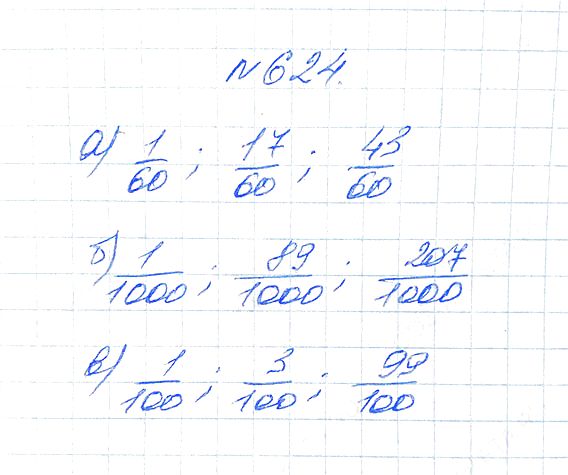 №624.
а) 1/60; 17/60; 43/60
б) 1/1000; 89/1000; 207/1000
в) 1/100; 3/100; 99/100